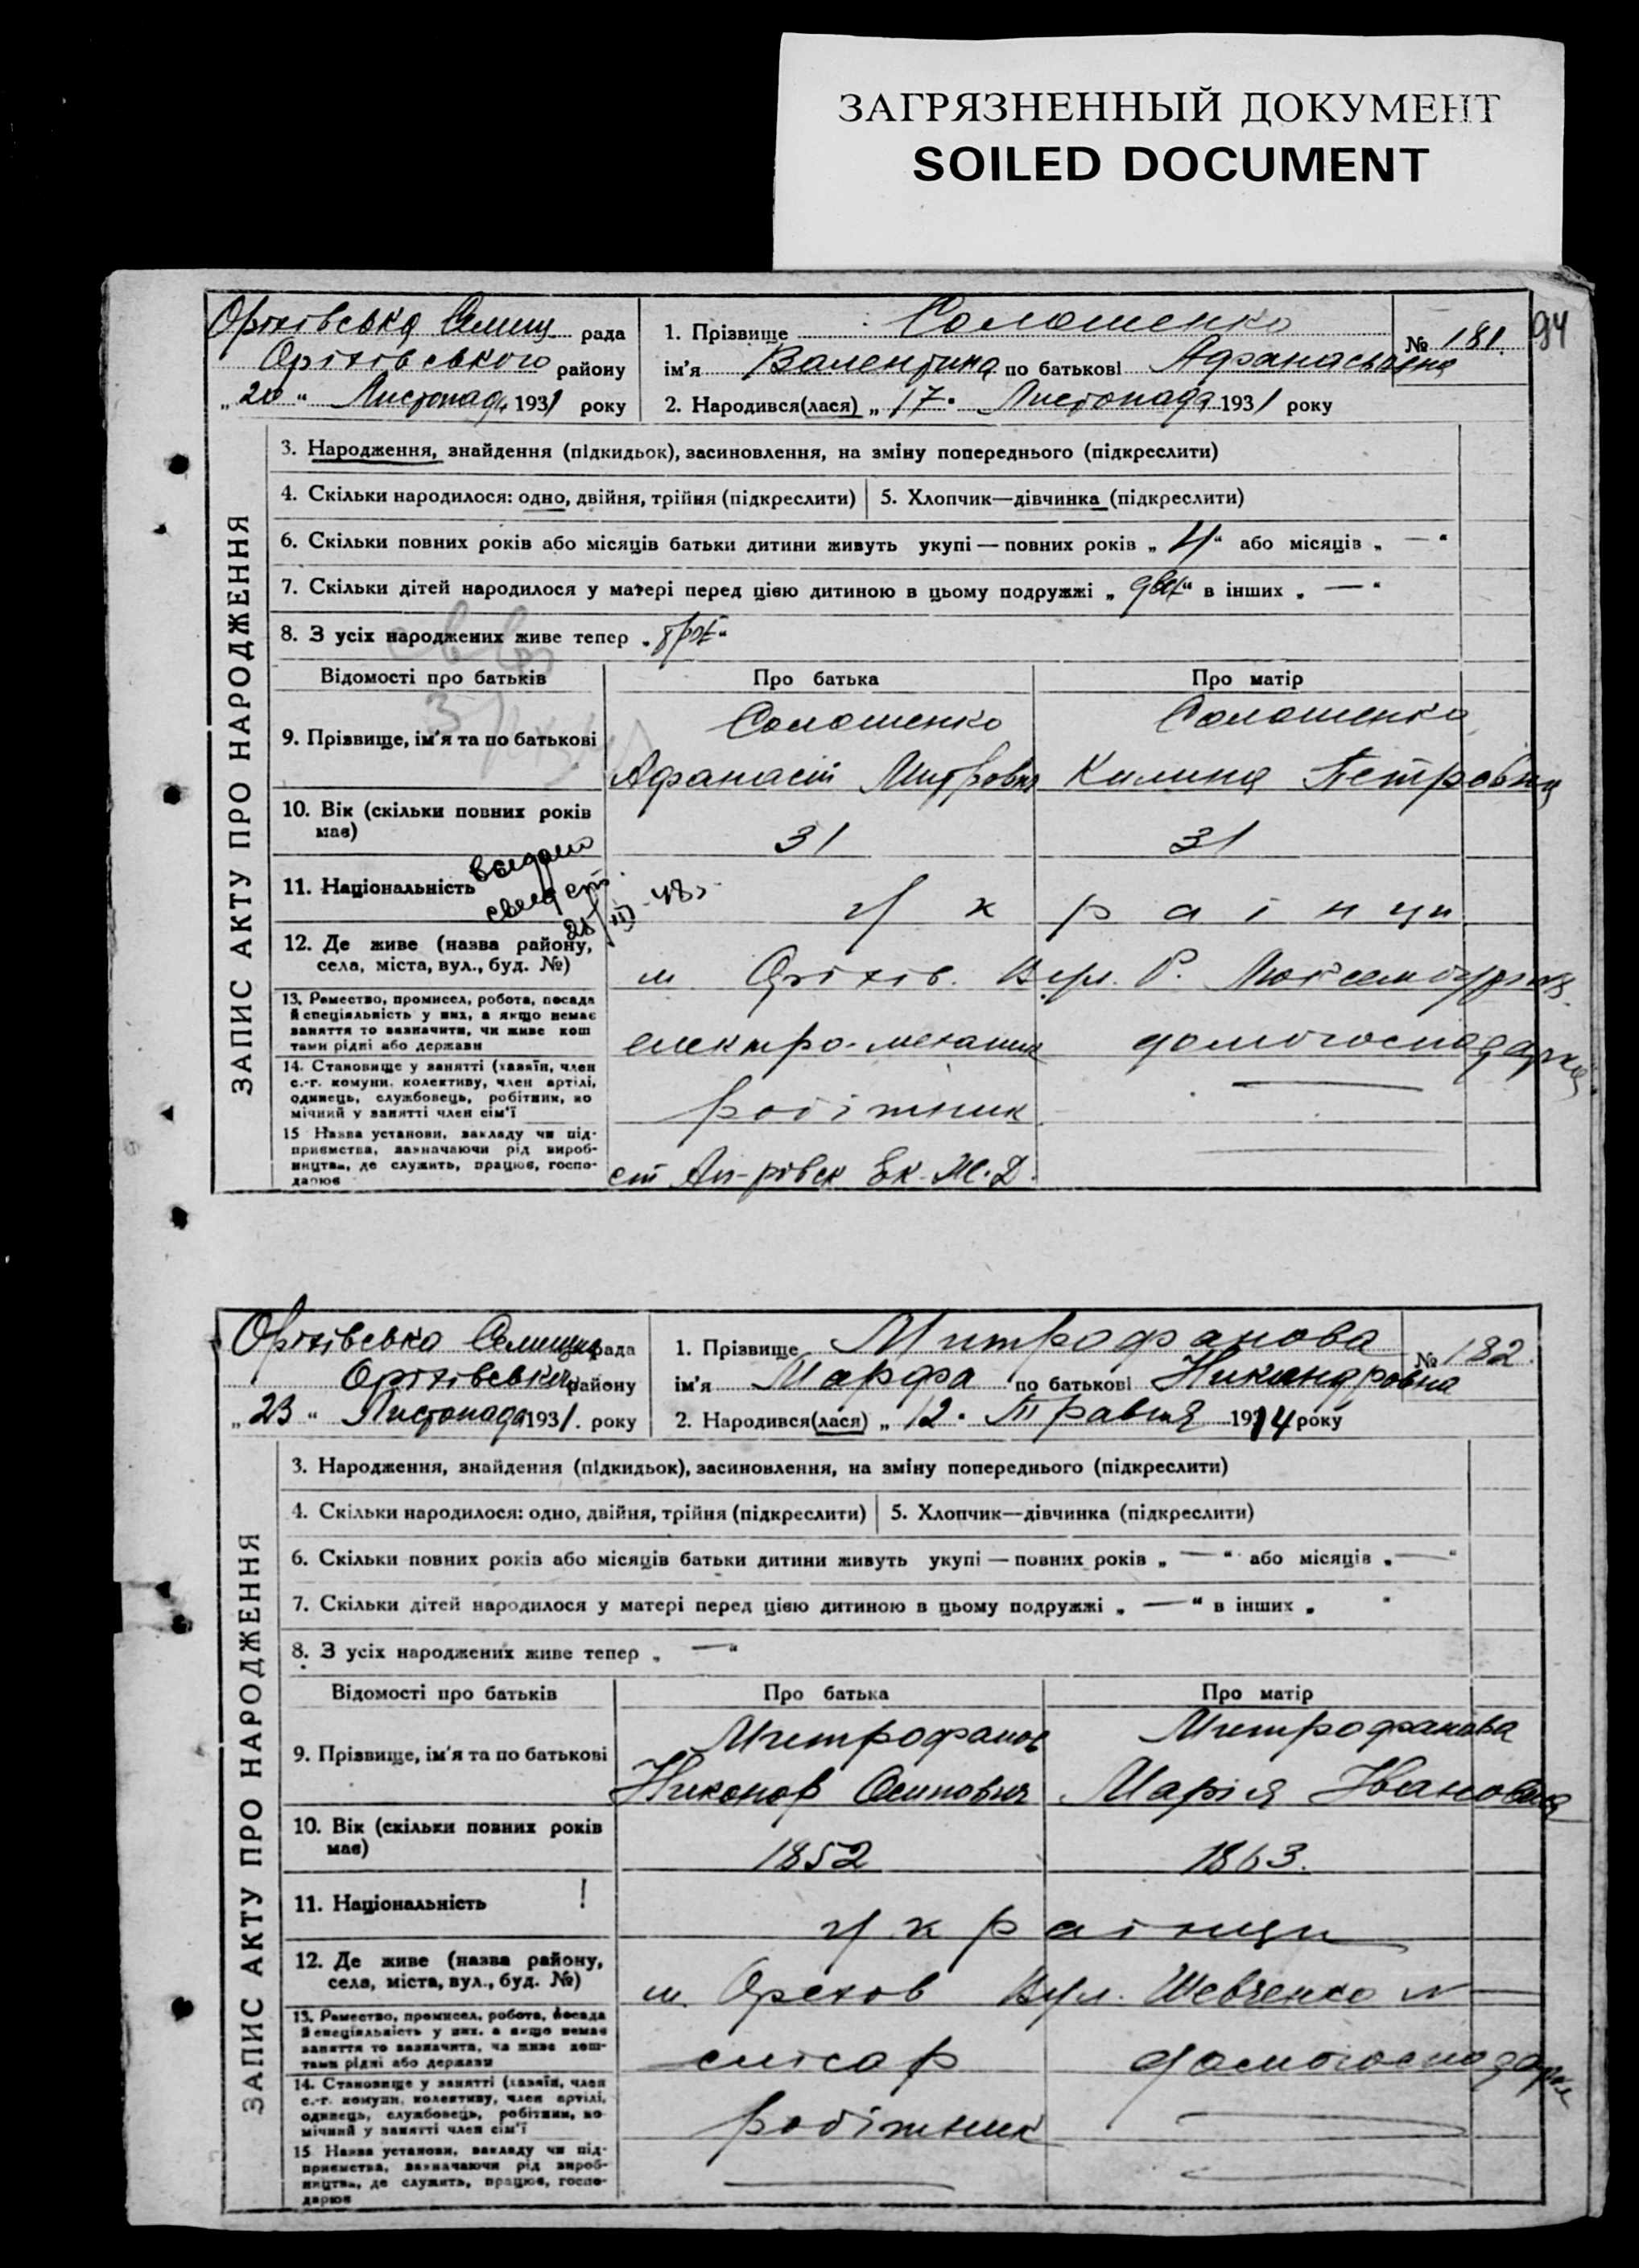 ЗАГРЯЗНЕННЫЙ ДОКУМЕНТ
SOILED DOCUMENT
94
Оріхівська Селищ рада
Оріхівського району
„20“ Листопад. 1931 року
1. Прізвище Солошенко
№ 181.
ім'я Валентина по батькові Афанасьевна
2. Народився(лася) „17“ Листопада 1931 року
ЗАПИС АКТУ ПРО НАРОДЖЕННЯ
3. Народження, знайдення (підкидьок), засиновлення, на зміну попереднього (підкреслити)
4. Скільки народилося: одно, двійня, трійня (підкреслити) 5. Хлопчик—дівчинка (підкреслити)
6. Скільки повних років або місяців батьки дитини живуть укупі — повних років „4“ або місяців „—“
7. Скільки дітей народилося у матері перед цією дитиною в цьому подружжі „двох“ в інших „—“
8. З усіх народжених живе тепер „троє“
Відомості про батьків Про батька Про матір
9. Прізвище, ім'я та по батькові
Солошенко Солошенко
Афанасій Митрович Килина Петровна
10. Вік (скільки повних років має) 31 31
11. Національність українци
12. Де живе (назва району, села, міста, вул., буд. №)
м. Оріхів. Вул. Р.
13. Ремество, промисел, робота, посада й спеціяльність у них, а якщо немає заняття то зазначити, чи живе коштами рідні або держави
електро-механик домогосподарка
14. Становище у занятті (хазяїн, член с.-г. комуни, колективу, член артілі, одинець, службовець, робітник, помічний у занятті член сім'ї
робітник —
15 Назва установи, закладу чи підприємства, зазначаючи рід виробництва, де служить, працює, господарює
ст Ал-рівск Ек. Ж.Д. —
видано
свидет.
25/III-48г
Оріхівська Селищна рада
Оріхівський району
„23“ Листопада 1931. року
1. Прізвище Митрофанова
№ 182.
ім'я Марфа по батькові Никандровна
2. Народився(лася) „12“ Травня 1914 року
ЗАПИС АКТУ ПРО НАРОДЖЕННЯ
3. Народження, знайдення (підкидьок), засиновлення, на зміну попереднього (підкреслити)
4. Скільки народилося: одно, двійня, трійня (підкреслити) 5. Хлопчик—дівчинка (підкреслити)
6. Скільки повних років або місяців батьки дитини живуть укупі — повних років „—“ або місяців „—“
7. Скільки дітей народилося у матері перед цією дитиною в цьому подружжі „—“ в інших „ “
8. З усіх народжених живе тепер „—“
Відомості про батьків Про батька Про матір
9. Прізвище, ім'я та по батькові
Митрофанов Митрофанова
Никонор Осипович Марія Івановна
10. Вік (скільки повних років має) 1852 1863.
11. Національність ! українци
12. Де живе (назва району, села, міста, вул., буд. №)
м. Орехов Вул. Шевченко № —
13. Ремество, промисел, робота, посада й спеціяльність у них, а якщо немає заняття то зазначити, чи живе коштами рідні або держави
слісар домогосподарка
14. Становище у занятті (хазяїн, член с.-г. комуни, колективу, член артілі, одинець, службовець, робітник, помічний у занятті член сім'ї
робітник —
15 Назва установи, закладу чи підприємства, зазначаючи рід виробництва, де служить, працює, господарює
— —